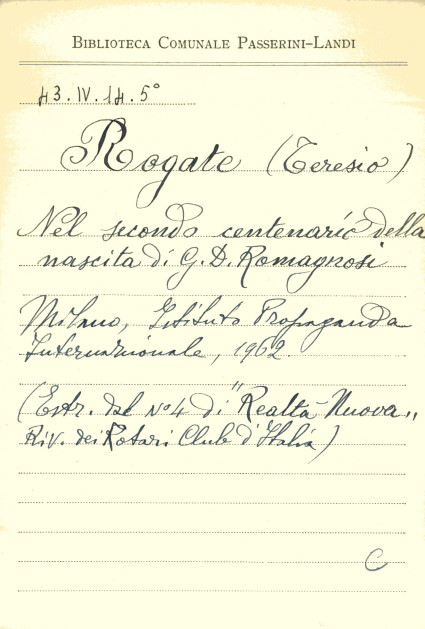 BIBLIOTECA COMUNALE PASSERINI-LANDI
43.IV.14.5°
Rogate (Teresio)
Nel secondo centenario della
nascita di G. D. Romagnosi
Milano, Istituto Propaganda
Internazionale, 1962.
(Estr. dal N°4 di "Realtà Nuova„
Riv. dei Rotari Club d'Italia)
C